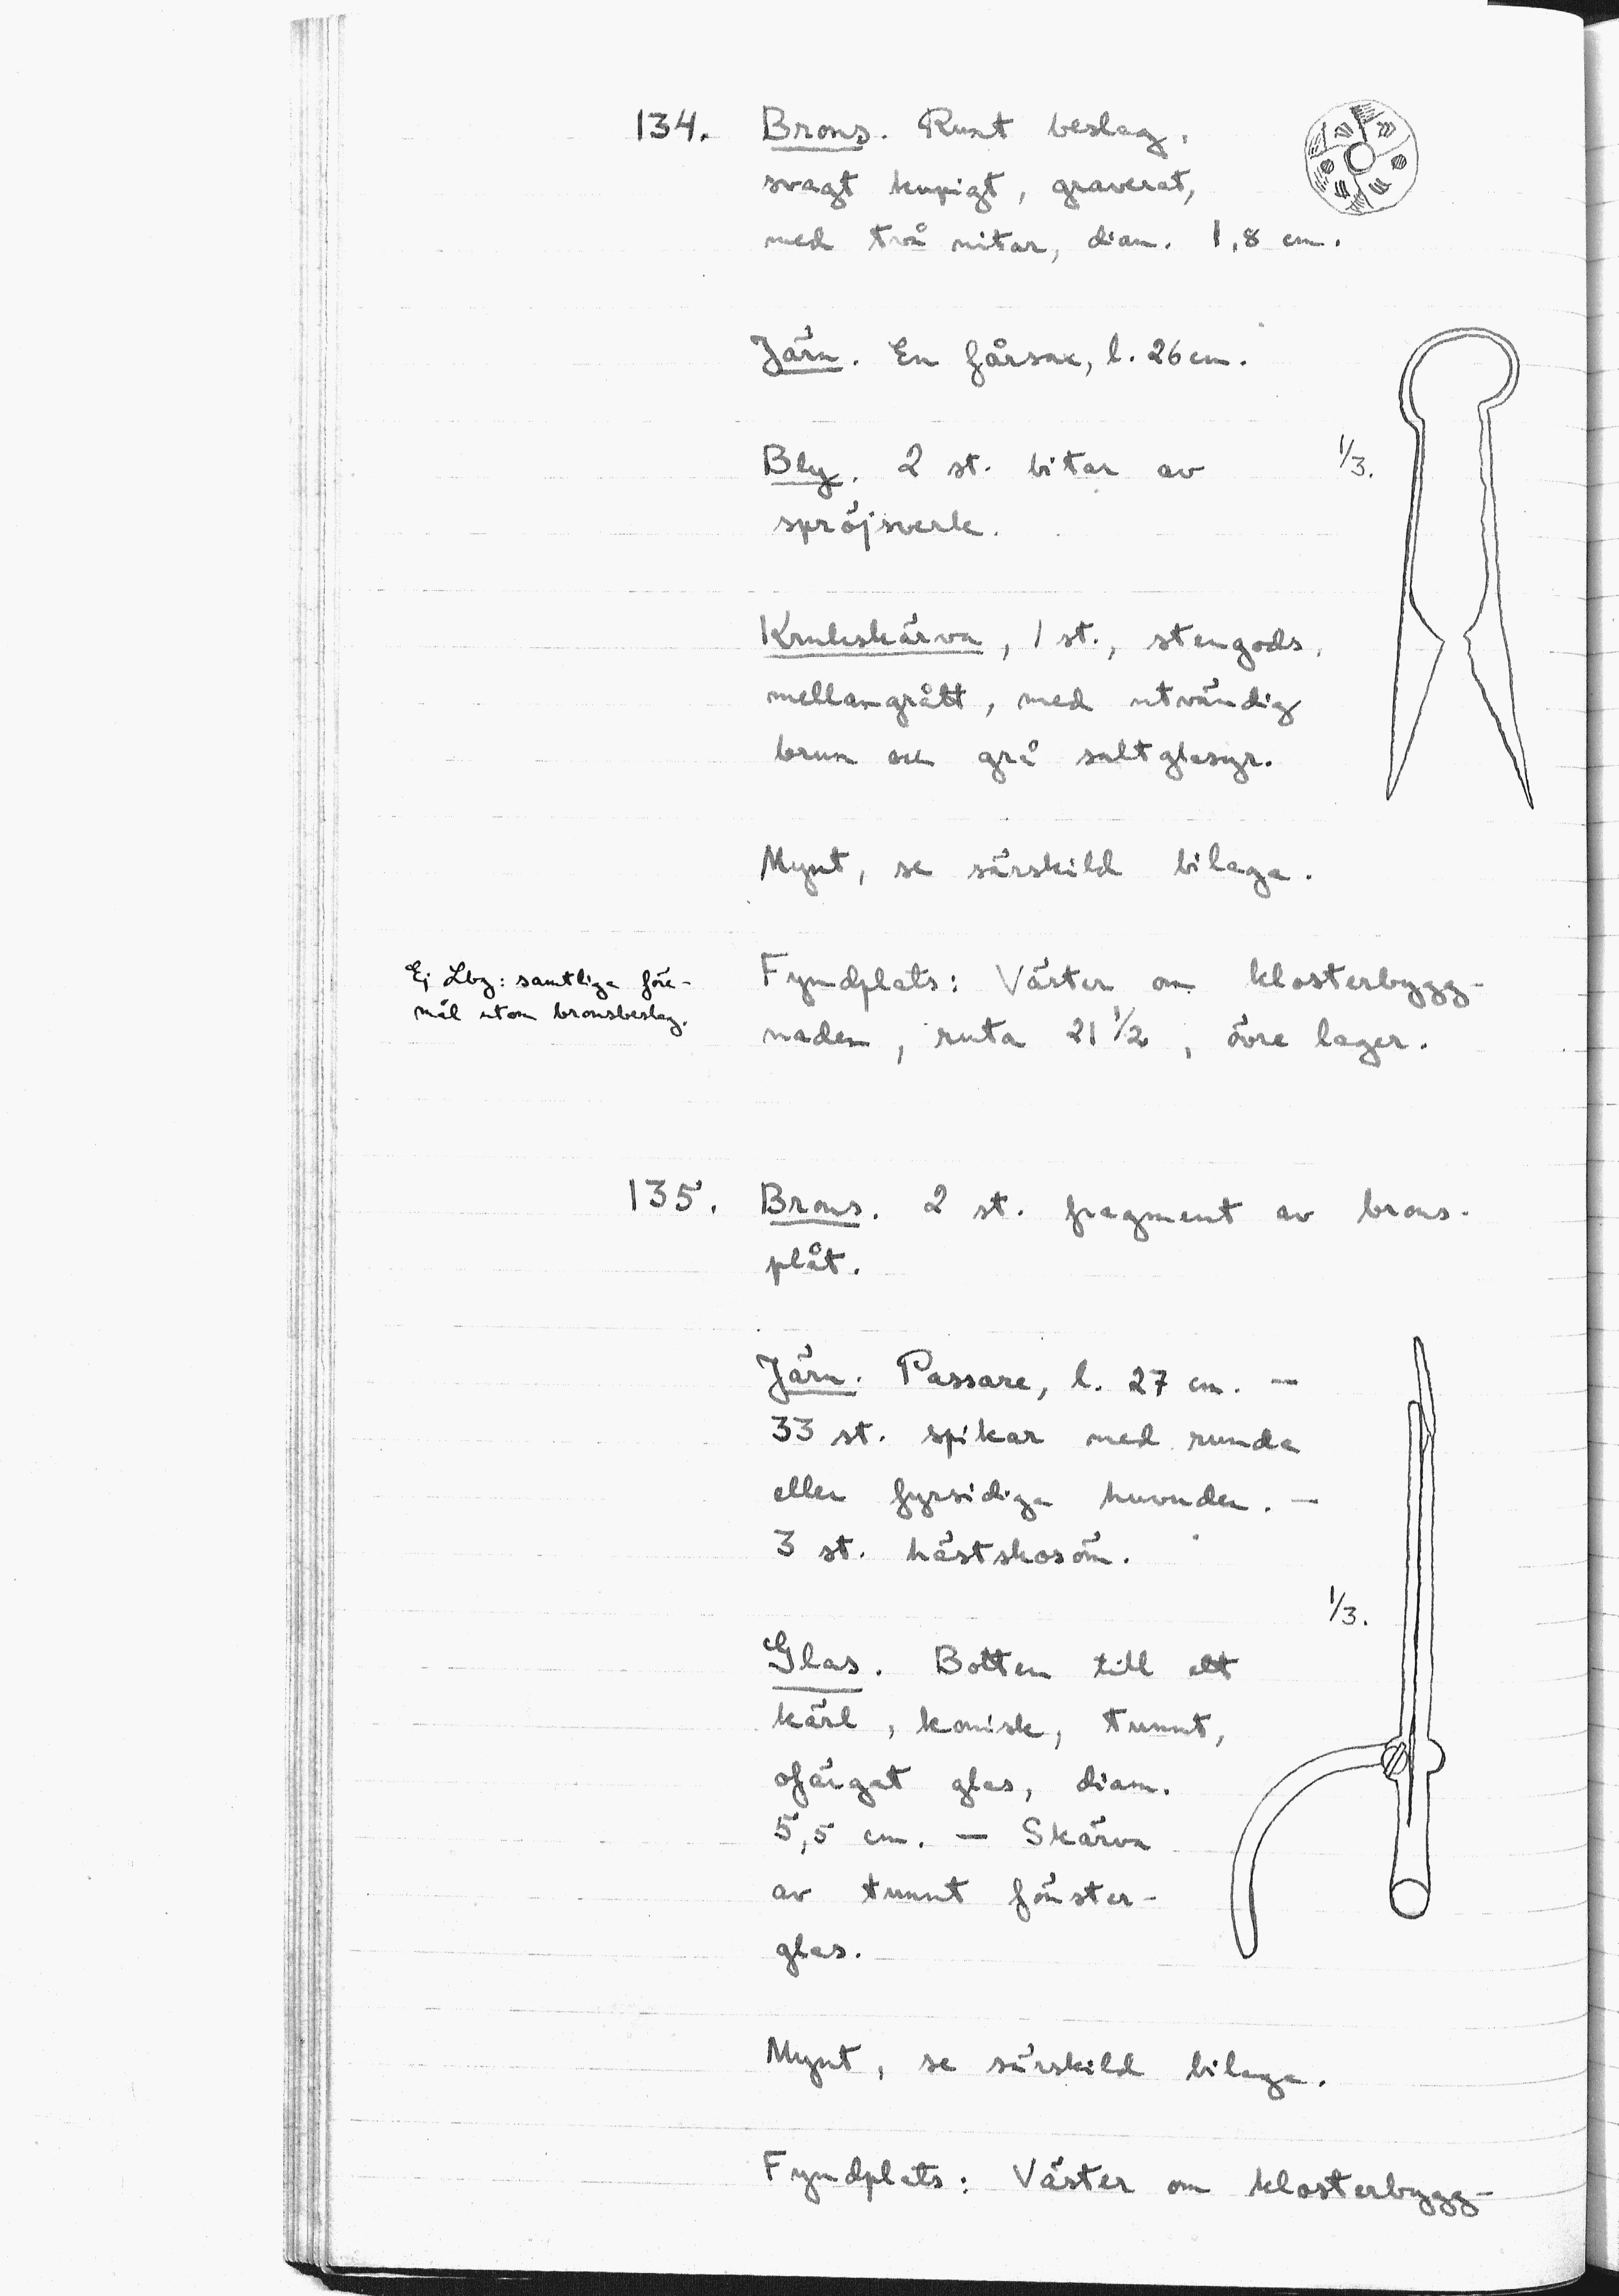 134. Brons. Runt beslag,
svagt kupigt, graverat,
med två nitar, diam. 1,8 cm.
Järn. En fårsax, l. 26 cm.
Bly. 2 st. bitar av
spröjsverk.
1/3.
Krukskärva, 1 st., stengods,
mellangrått, med utvändig
brun och grå saltglasyr.
Mynt, se särskild bilaga.
Ej Lbg: samtliga före-
mål utom bronsbeslag.
Fyndplats: Väster om klosterbygg-
naden, ruta 21 1/2, övre lager.
135. Brons. 2 st. fragment av brons-
plåt.
Järn. Passare, l. 27 cm. —
33 st. spikar med runda
eller fyrsidiga huvuden. —
3 st. hästskosöm.
1/3.
Glas. Botten till ett
kärl, konisk, tunnt,
ofärgat glas, diam.
5,5 cm. — Skärva
av tunnt fönster-
glas.
Mynt, se särskild bilaga.
Fyndplats: Väster om klosterbygg-